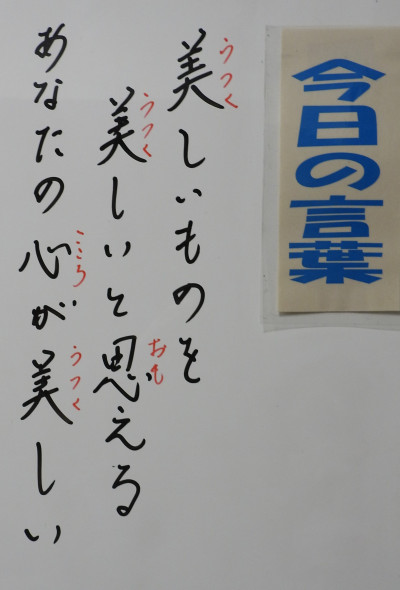 今日の言葉
うつく
美しいものを
うつく おも
美しいと思える
こころ うつく
あなたの心が美しい